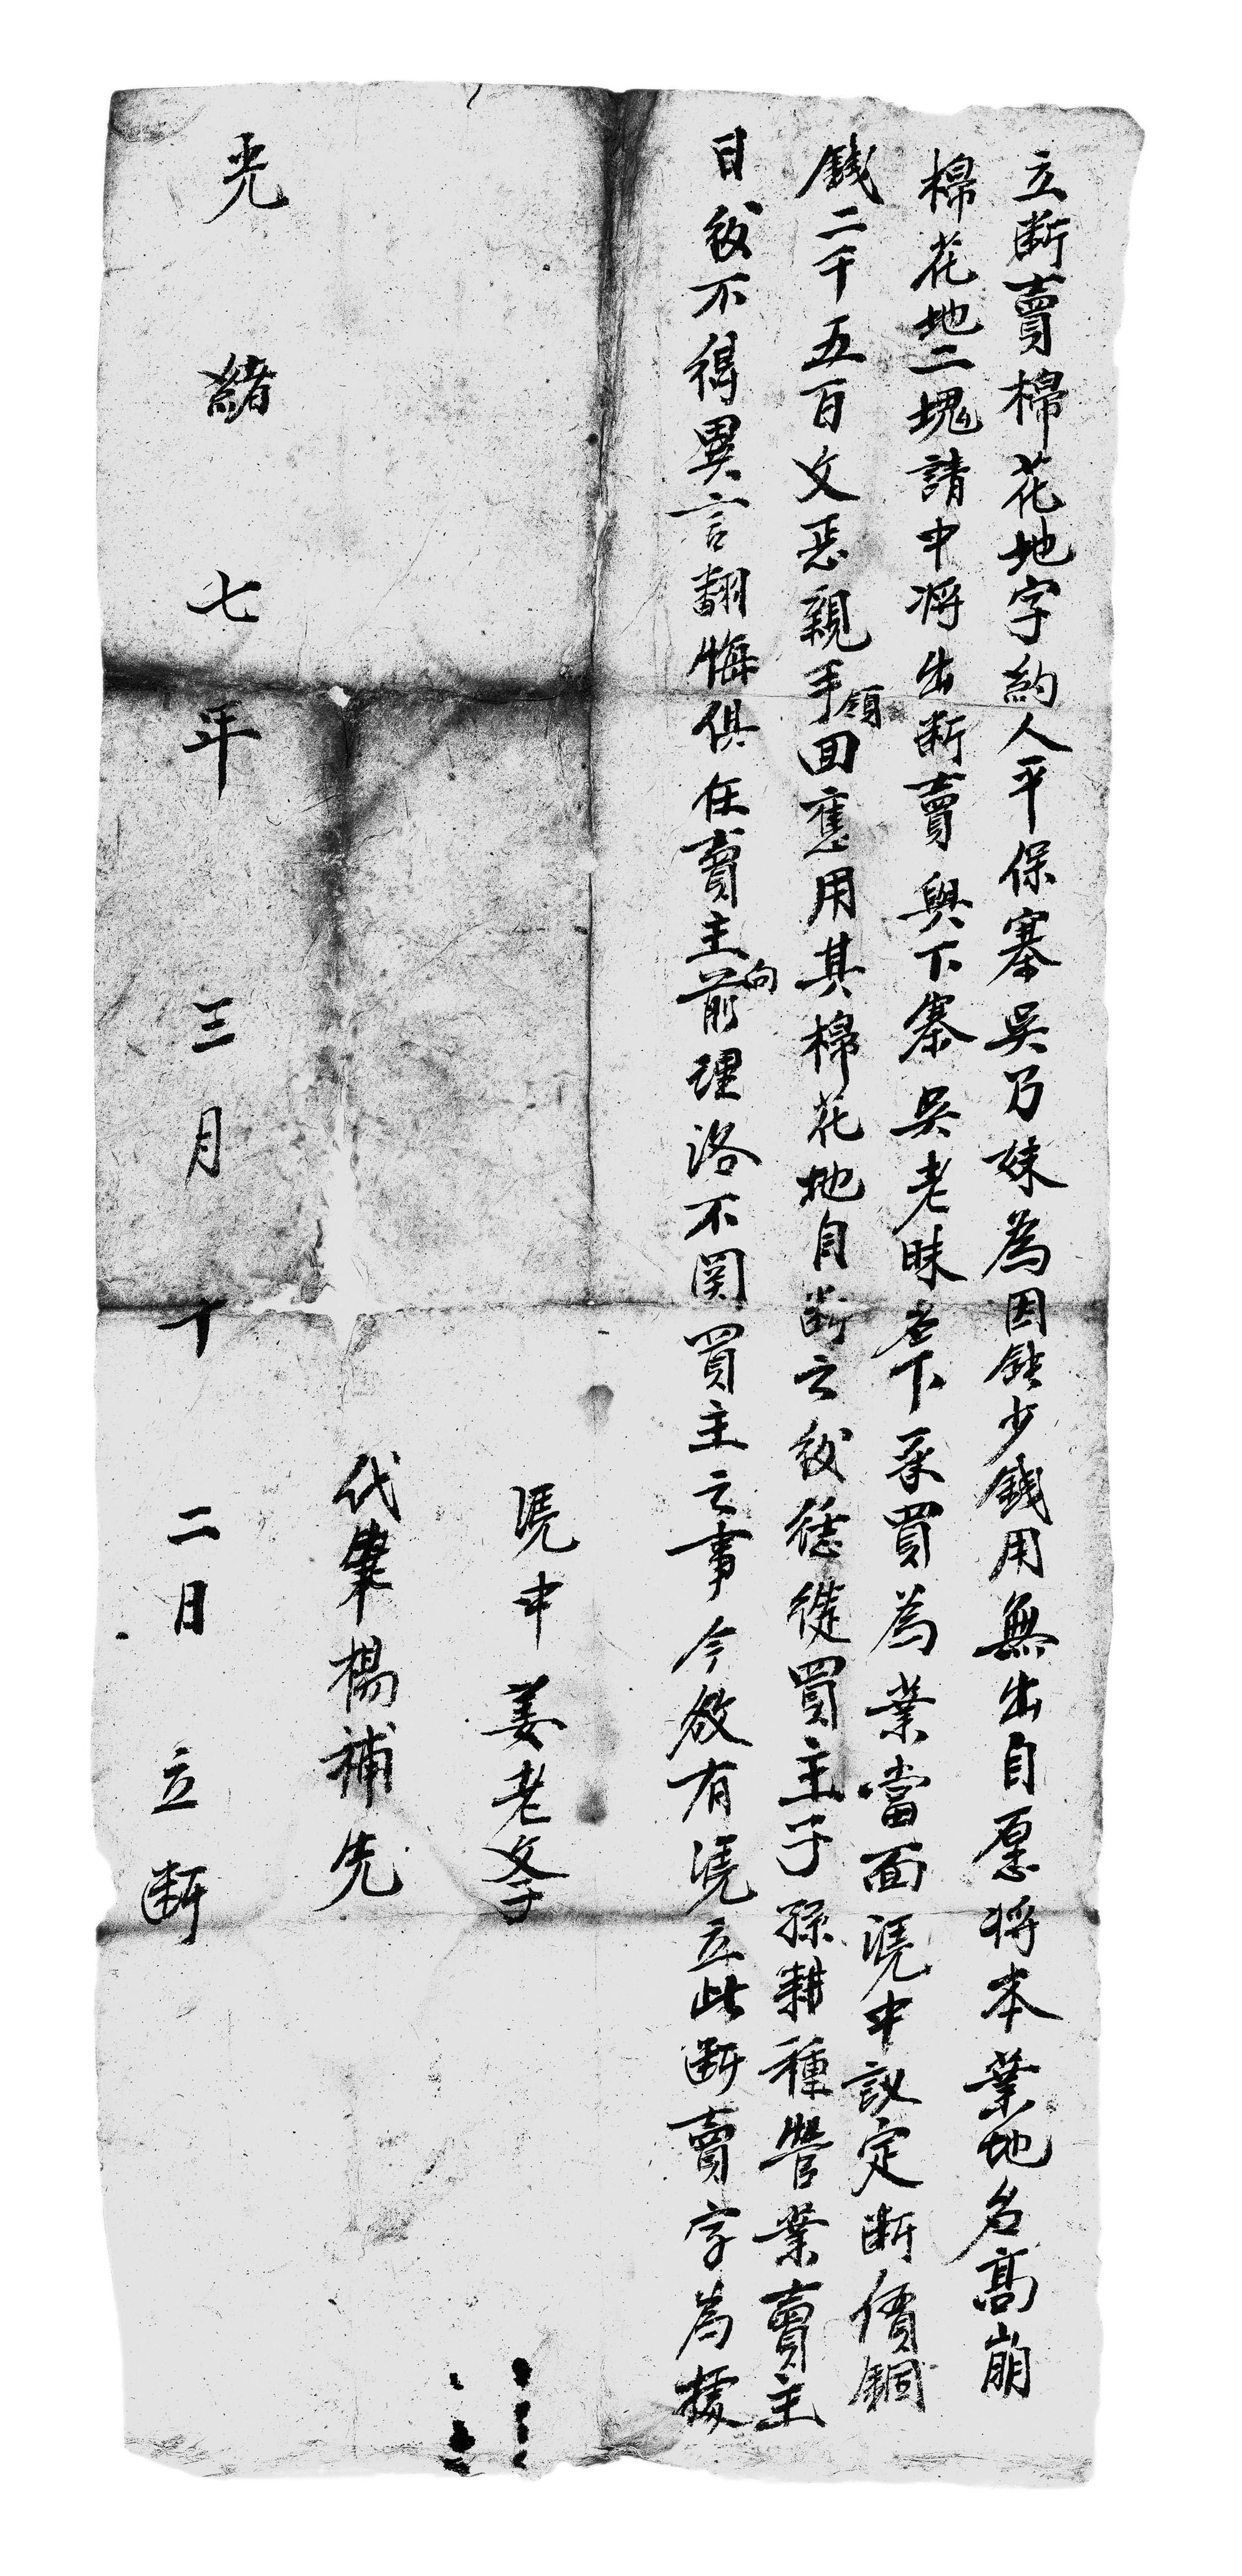 立断賣棉花地字約人平保寨吳乃妹為因缺少錢用無出自愿將本業地名高崩
棉花地二塊請中將出断賣與下寨吳老昧名下承買為業當面凴中議定断價銅
錢二千五百文恶親手領回應用其棉花地自断之後恁從買主子孫耕種營業賣主
日後不得異言翻悔俱在賣主向前理洛不関買主之事今欲有凴立此断賣字為據
凴中姜老
代筆楊補先
光緒七年三月十二日立断